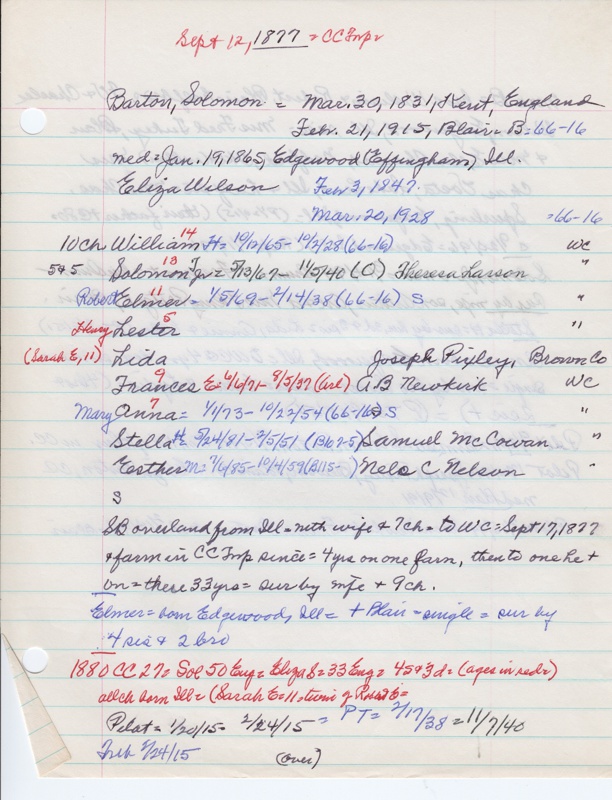 Sept 12, 1877 = CC Twp
Barton, Solomon = Mar. 30, 1831, Kent, England
Feb. 21, 1915, Blair = B = 66-16
med = Jan. 19, 1865, Edgewood (Effingham) Ill.
Eliza Wilson Feb 3, 1847
Mar. 20, 1928 = 66-16
10 ch William 14 H = 10/12/65 - 10/2/28 (66-16) WC
5 & 5 Solomon 13 Jr = 5/13/67 - 11/5/40 (O) Theresa Larson "
Robert Elmer 11 = 1/5/69 - 2/14/38 (66-16) S "
Henry Lester 5 "
(Sarah E, 11) Lida Joseph Pixley, Brown Co
Frances 9 E = 4/6/71 - 9/5/37 (Arl) A.B Newkirk WC
Mary Anna 7 = 1/1/73 - 10/22/54 (66-16) S "
Stella H = 5/24/81 - 2/5/51 (B62-5) Samuel McCowan "
Esther M = 7/6/85 - 10/4/59 (B115- ) Nels C Nelson "
S
SB overland from Ill = with wife & 7 ch = to WC = Sept 17, 1877
& farm in CC Twp since = 4 yrs on one farm, then to one he +
on = there 33 yrs = sur by wife + 9 ch.
Elmer = born Edgewood, Ill = + Blair = single = sur by
4 sis & 2 bro
1880 CC 27 = Sol 50 Eng = Eliza S = 33 Eng = 4s & 3d = (ages in red)
all ch born Ill = (Sarah E = 11, twin of Robert E =
Pilot = 1/20/15 = 2/24/15 = PT = 2/17/38 = 11/7/40
Trib 2/24/15 (over)